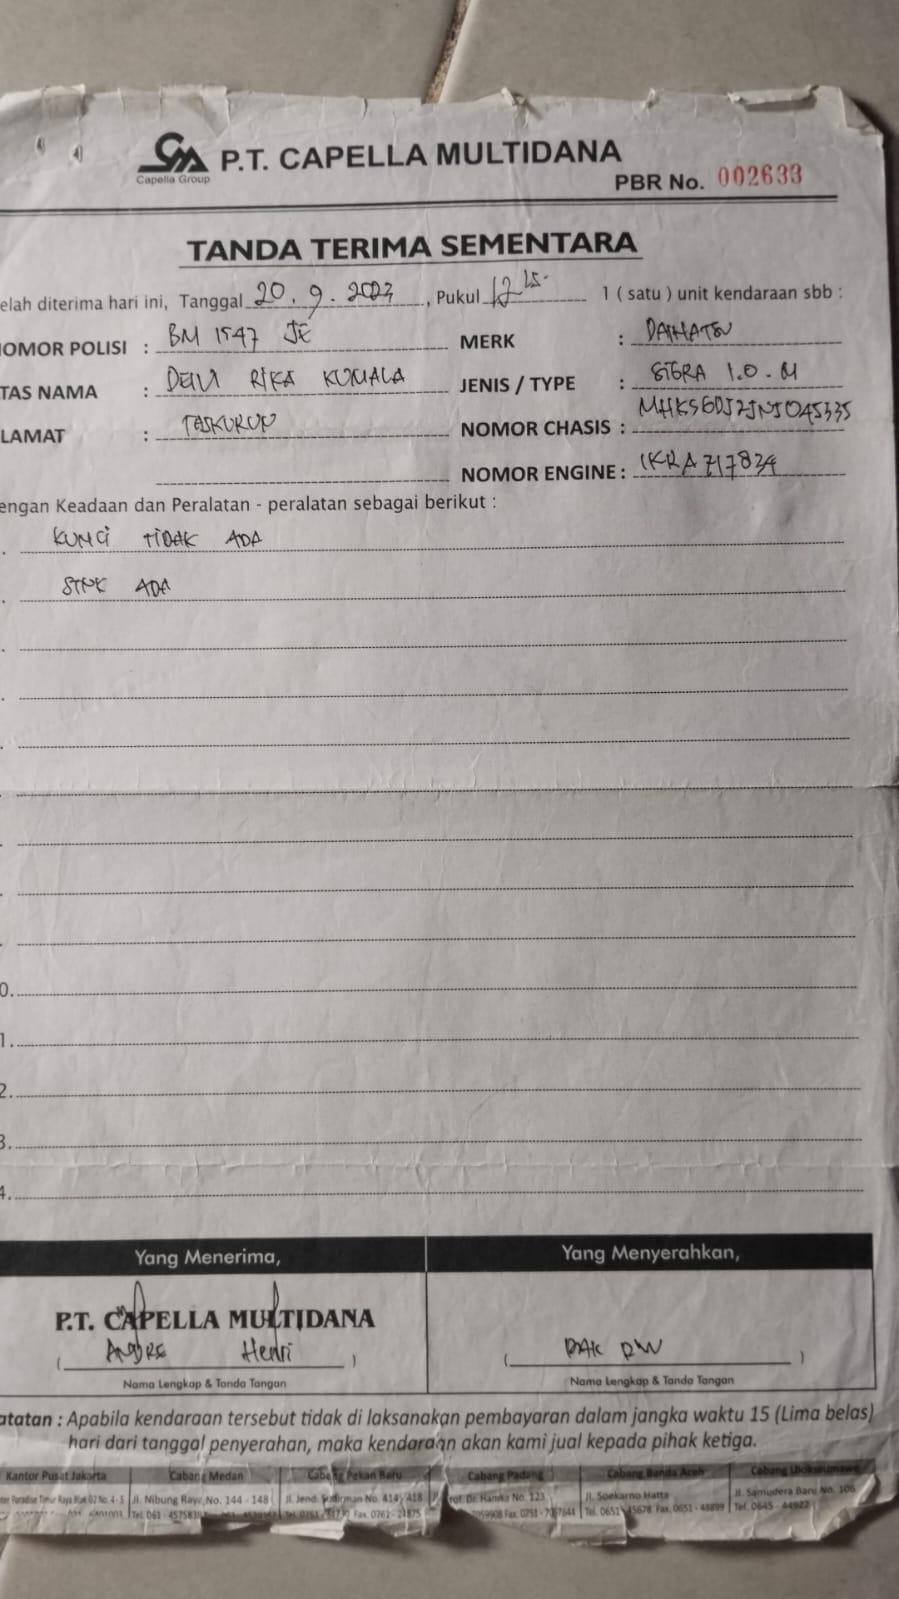 CM P.T. CAPELLA MULTIDANA
Capella Group
PBR No. 002633
TANDA TERIMA SEMENTARA
elah diterima hari ini, Tanggal 20.9.2023, Pukul 12 15. 1 ( satu ) unit kendaraan sbb :
OMOR POLISI : BM 1547 JE MERK : DAIHATSU
TAS NAMA : DEWI RIKA KUMALA JENIS / TYPE : SIGRA 1.0.M
LAMAT : NOMOR CHASIS :
NOMOR ENGINE : 1KRA717834
engan Keadaan dan Peralatan - peralatan sebagai berikut :
. KUNCI TIDAK ADA
. STNK ADA
.
.
.
.
.
.
0.
1.
2.
3.
4.
Yang Menerima, Yang Menyerahkan,
P.T. CAPELLA MULTIDANA
( ANDRE Henri ) ( PAK RW )
Nama Lengkap & Tanda Tangan Nama Lengkap & Tanda Tangan
atatan : Apabila kendaraan tersebut tidak di laksanakan pembayaran dalam jangka waktu 15 (Lima belas)
hari dari tanggal penyerahan, maka kendaraan akan kami jual kepada pihak ketiga.
Kantor Pusat Jakarta Cabang Medan Cabang Pekan Baru Cabang Padang Cabang Banda Aceh Cabang Lhokseumawe
Raya Blok O2 No. 4 - 5 Jl. Nibung Raya No. 144 - 148 Jl. Jend. Sudirman No. 414 / 418 Prof. Dr. Hamka No. 123 Jl. Soekarno Hatta Jl. Samudera Baru No. 106
Fax. 0762 - 21875 Fax. 0751 - 7057644 Fax. 0651 - 48899 Tel. 0645 - 44922